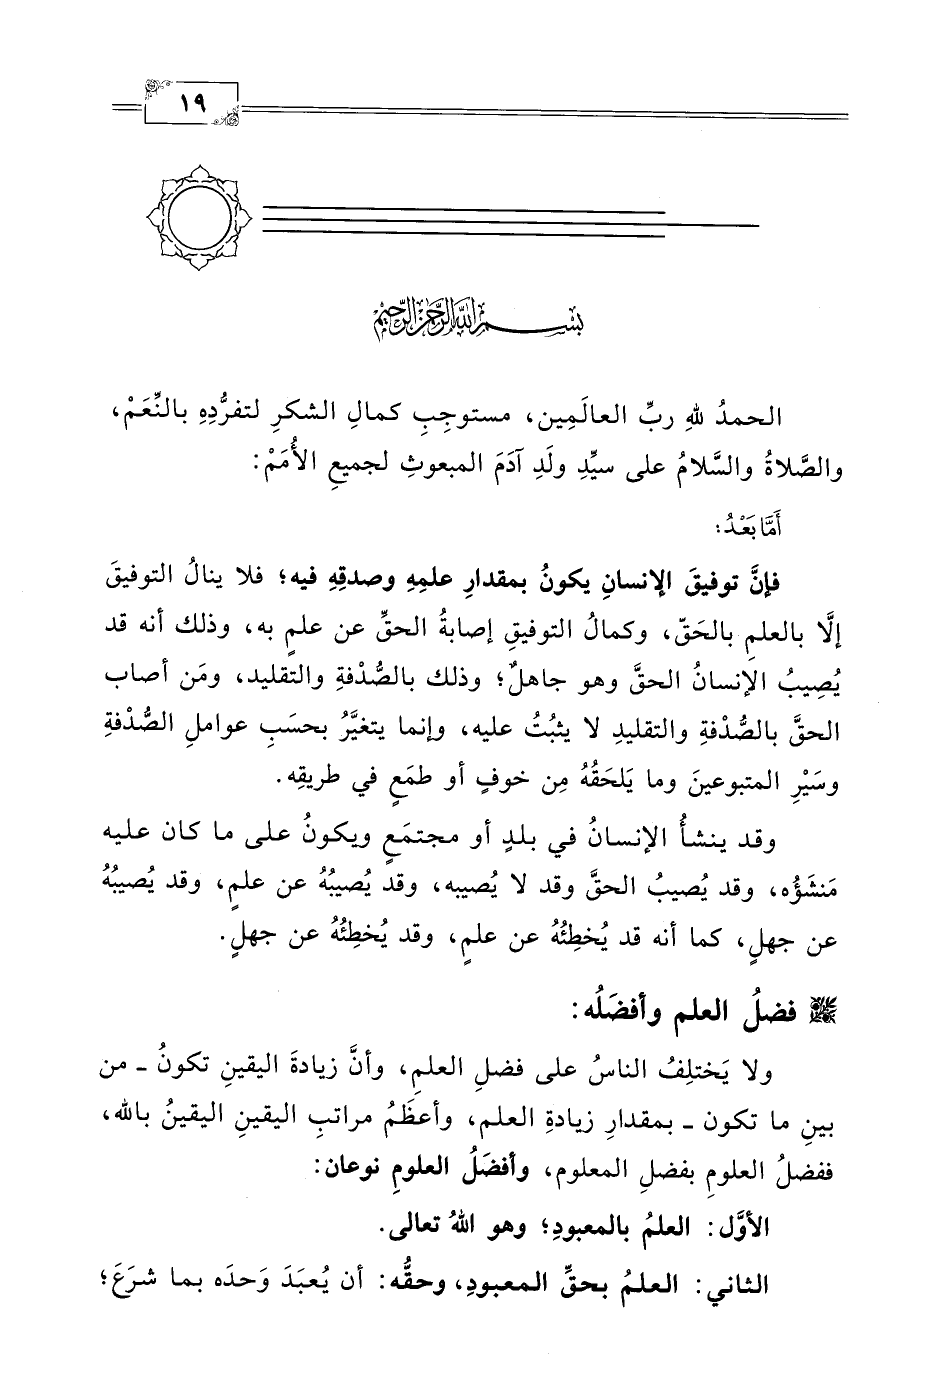 ١٩
بسم الله الرحمن الرحيم
الحمدُ للهِ ربِّ العالَمِين، مستوجِبِ كمالِ الشكرِ لتفرُّدِهِ بالنِّعَمْ،
والصَّلاةُ والسَّلامُ على سيِّدِ ولَدِ آدَمَ المبعوثِ لجميعِ الأُمَمْ:
أَمَّا بَعْدُ:
فإنَّ توفيقَ الإنسانِ يكونُ بمقدارِ علمِهِ وصدقِهِ فيه؛ فلا ينالُ التوفيقَ
إلَّا بالعلمِ بالحَقّ، وكمالُ التوفيقِ إصابةُ الحقِّ عن علمٍ به، وذلك أنه قد
يُصِيبُ الإنسانُ الحقَّ وهو جاهلٌ؛ وذلك بالصُّدْفةِ والتقليد، ومَن أصاب
الحقَّ بالصُّدْفةِ والتقليدِ لا يثبُتُ عليه، وإنما يتغيَّرُ بحسَبِ عواملِ الصُّدْفةِ
وسَيْرِ المتبوعينَ وما يَلحَقُهُ مِن خوفٍ أو طمَعٍ في طريقِه.
وقد ينشأُ الإنسانُ في بلدٍ أو مجتمَعٍ ويكونُ على ما كان عليه
مَنشَؤُه، وقد يُصيبُ الحقَّ وقد لا يُصيبه، وقد يُصيبُهُ عن علمٍ، وقد يُصيبُهُ
عن جهلٍ، كما أنه قد يُخطِئُهُ عن علمٍ، وقد يُخطِئُهُ عن جهلٍ.
فضلُ العلم وأفضَلُه:
ولا يَختلِفُ الناسُ على فضلِ العلمِ، وأنَّ زيادةَ اليقينِ تكونُ ـ من
بينِ ما تكون ـ بمقدارِ زيادةِ العلم، وأعظَمُ مراتبِ اليقينِ اليقينُ بالله،
ففضلُ العلومِ بفضلِ المعلوم، وأفضَلُ العلومِ نوعان:
الأوَّل: العلمُ بالمعبودِ؛ وهو اللهُ تعالى.
الثاني: العلمُ بحقِّ المعبودِ، وحقُّه: أن يُعبَدَ وَحدَه بما شرَعَ؛